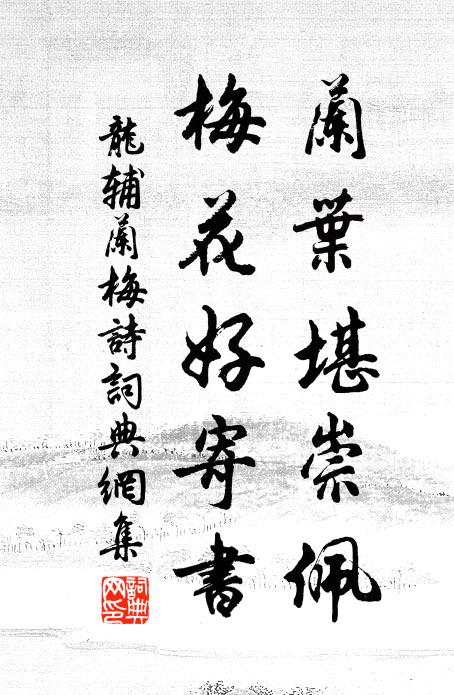 蘭葉堪崇佩
梅花好寄書
龍辅蘭梅詩詞典網集
詞典网印